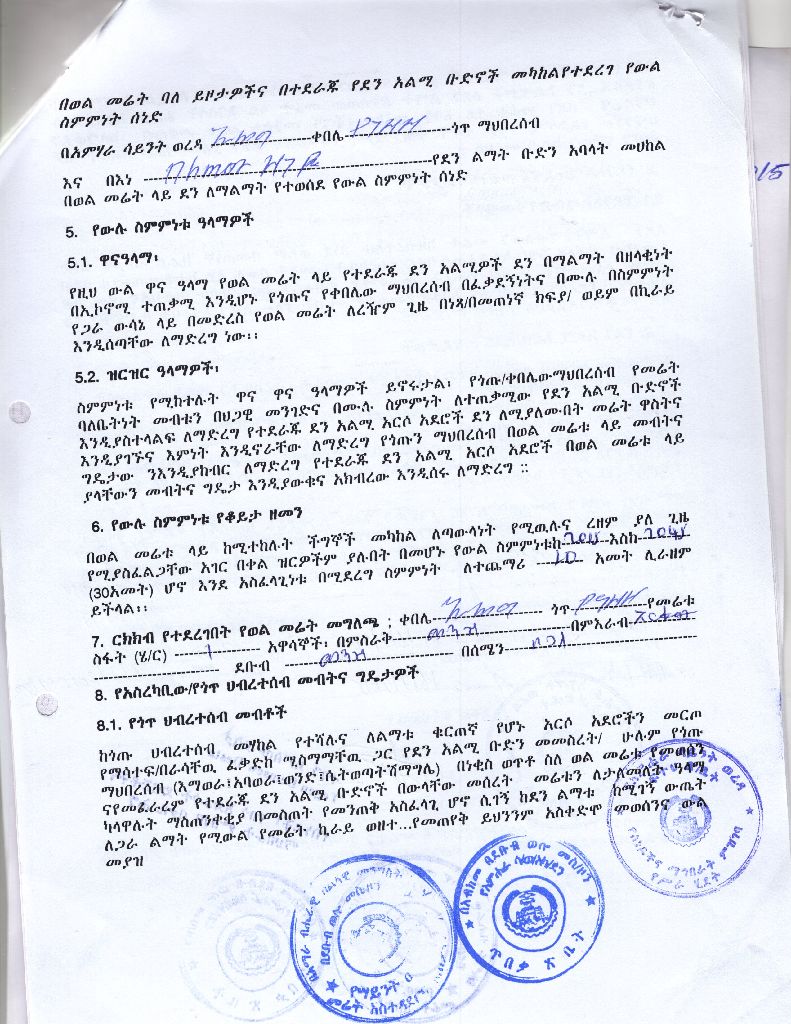 በወል መሬት ባለ ይዞታዎችና በተደራጁ የደን አልሚ ቡድኖች መካከልየተደረገ የውል
ስምምነት ሰነድ
በአምሃራ ሳይንት ወረዳ ---ቀበሌ---ጎጥ ማህበረሰብ
እና በእነ ---የደን ልማት ቡድን አባላት መሀከል
በወል መሬት ላይ ደን ለማልማት የተወሰደ የውል ስምምነት ሰነድ
5. የውሉ ስምምነቱ ዓላማዎች
5.1. ዋናዓላማ፡
የዚህ ውል ዋና ዓላማ የወል መሬት ላይ የተደራጁ ደን አልሚዎች ደን በማልማት በዘላቂነት
በኢኮኖሚ ተጠቃሚ እንዲሆኑ የጎጡና የቀበሌው ማህበረሰብ በፈቃደኝነትና በሙሉ በስምምነት
የጋራ ውሳኔ ላይ በመድረስ የወል መሬት ለረዥም ጊዜ በነጻ/በመጠነኛ ክፍያ/ ወይም በኪራይ
እንዲሰጣቸው ለማድረግ ነው፡፡
5.2. ዝርዝር ዓላማዎች፡
ስምምነቱ የሚከተሉት ዋና ዋና ዓላማዎች ይኖሩታል፡ የጎጡ/ቀበሌውማህበረሰብ የመሬት
ባለቤትነት መብቱን በህጋዊ መንገድና በሙሉ ስምምነት ለተጠቃሚው የደን አልሚ ቡድኖች
እንዲያስተላልፍ ለማድረግ የተደራጁ ደን አልሚ አርሶ አደሮች ደን ለሚያለሙበት መሬት ዋስትና
እንዲያገኙና እምነት እንዲኖራቸው ለማድረግ የጎጡን ማህበረሰብ በወል መሬቱ ላይ መብትና
ግዴታው ንእንዲያከብር ለማድረግ የተደራጁ ደን አልሚ አርሶ አደሮች በወል መሬቱ ላይ
ያላቸውን መብትና ግዴታ እንዲያውቁና አክብረው እንዲሰሩ ለማድረግ ::
6. የውሉ ስምምነቱ የቆይታ ዘመን
በወል መሬቱ ላይ ከሚተከሉት ችግኞች መካከል ለጣውላነት የሚዉሉና ረዘም ያለ ጊዜ
የሚያስፈልጋቸው አገር በቀል ዝርዎችም ያሉበት በመሆኑ የውል ስምምነቱከ---እስከ---
(30አመት) ሆኖ እንደ አስፈላጊነቱ በሚደረግ ስምምነት ለተጨማሪ --- አመት ሊራዘም
ይችላል፡፡
7. ርክክብ የተደረገበት የወል መሬት መግለጫ ; ቀበሌ--- ጎጥ ---የመሬቱ
ስፋት (ሄ/ር) --- አዋሳኞች፡ በምስራቅ---በምእራብ---
--- ደቡብ --- በሰሜን---
8. የአስረካቢው/የጎጥ ህብረተሰብ መብትና ግዴታዎች
8.1. የጎጥ ህብረተሰብ መብቶች
ከጎጡ ህብረተሰብ መሃከል የተሻሉና ለልማቱ ቁርጠኛ የሆኑ አርሶ አደሮችን መርጦ
የማሳተፍ/በራሳቸዉ ፈቃድከ ሚስማማቸዉ ጋር የደን አልሚ ቡድን መመስረት/ ሁሉም የጎጡ
ማህበረሰብ (እማወራ፣አባወራ፣ወንድ፣ሴትወጣትሽማግሌ) በነቂስ ወጥቶ ስለ ወል መሬቱ የመወሰን
ናየመፈራረም የተደራጁ ደን አልሚ ቡድኖች በውላቸው መሰረት መሬቱን ለታለመለት ዓላማ
ካላዋሉት ማስጠንቀቂያ በመስጠት የመንጠቅ አስፈላጊ ሆኖ ሲገኝ ከደን ልማቱ ከሚገኝ ውጤት
ለጋራ ልማት የሚውል የመሬት ኪራይ ወዘተ...የመጠየቅ ይህንንም አስቀድሞ መወሰንና ውል
መያዝ